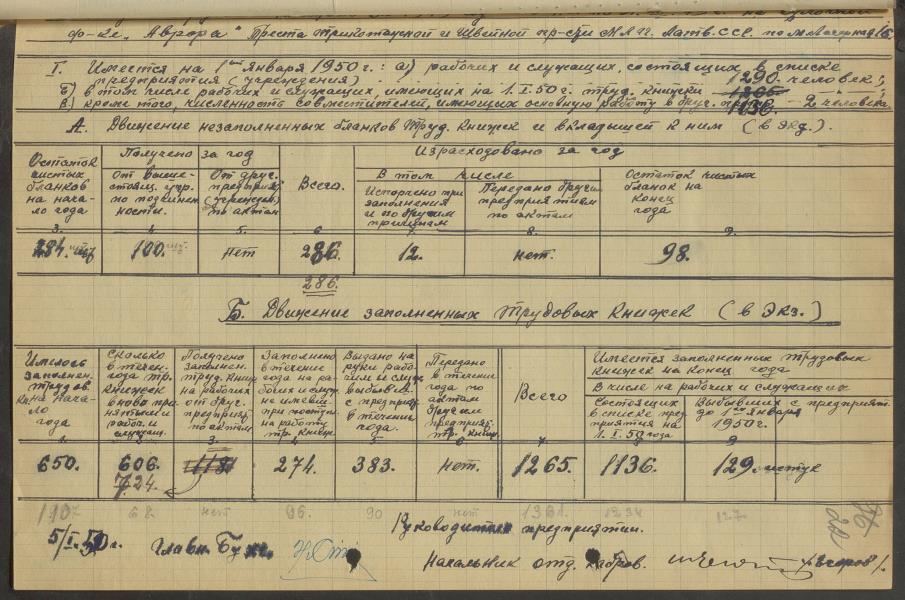 ф-ке „Аврора" Треста Трикотажной и Швейной пр-сти МЛП. Латв. ССР.
I. Имеется на 1ое января 1950 г.: а) рабочих и служащих, состоящих в списке
предприятия (учреждения) 1290 человек;
б) в том числе рабочих и служащих, имеющих на 1.I.50 г. труд. книжки 1265 1136.
в) кроме того, численность совместителей, имеющих основную работу в друг. – 2 человека.
А. Движение незаполненных бланков труд. книжек и вкладышей к ним (в экз.).
Остаток чистых бланков на начало года
Получено за год
От вышестоящ. учр. по подчиненности.
От друг. предприят. (учрежден) по актам
Всего.
Израсходовано за год
В том числе
Испорчено при заполнения и по другим причинам
Передано другим предприятиям по актам
Остаток чистых бланок на конец года
3. 4. 5. 6 7 8. 9.
284. 100. Нет 286. 12. нет. 98.
286.
Б. Движение заполненных трудовых книжек (в экз.)
Имелось заполнен. трудов. кн. на начало года
Сколько в течен. года тр. книжек вновь принятыми рабоч. и служащ.
Получено заполнен. труд. книж на рабочих от друг. предприят. по актам
Заполнено в течение года на рабочих и служ. не имевш. при поступ. на работу тр. книж.
Выдано на руки рабочим и служ. выбывшим с предприят. в течение года.
Передано в течении года по актам другим предприят. тр. книж.
Всего
Имеется заполненных трудовых книжек на конец года
В числе на рабочих и служащих
Состоящих в списке предприятия на 1.I.50 года
Выбывших с предприят. до 1ое января 1950 г.
1. 2 3. 4. 5 6 7. 8 9
650. 606. 1181 274. 383. нет. 1265. 1136. 129. штук
724.
1107 62 нет 96. 90 нет 1361. 1234 127
Руководитель предприятии.
5/I.50 г. Главн. Бух.
Начальник отд. кадров. /Егоров/.